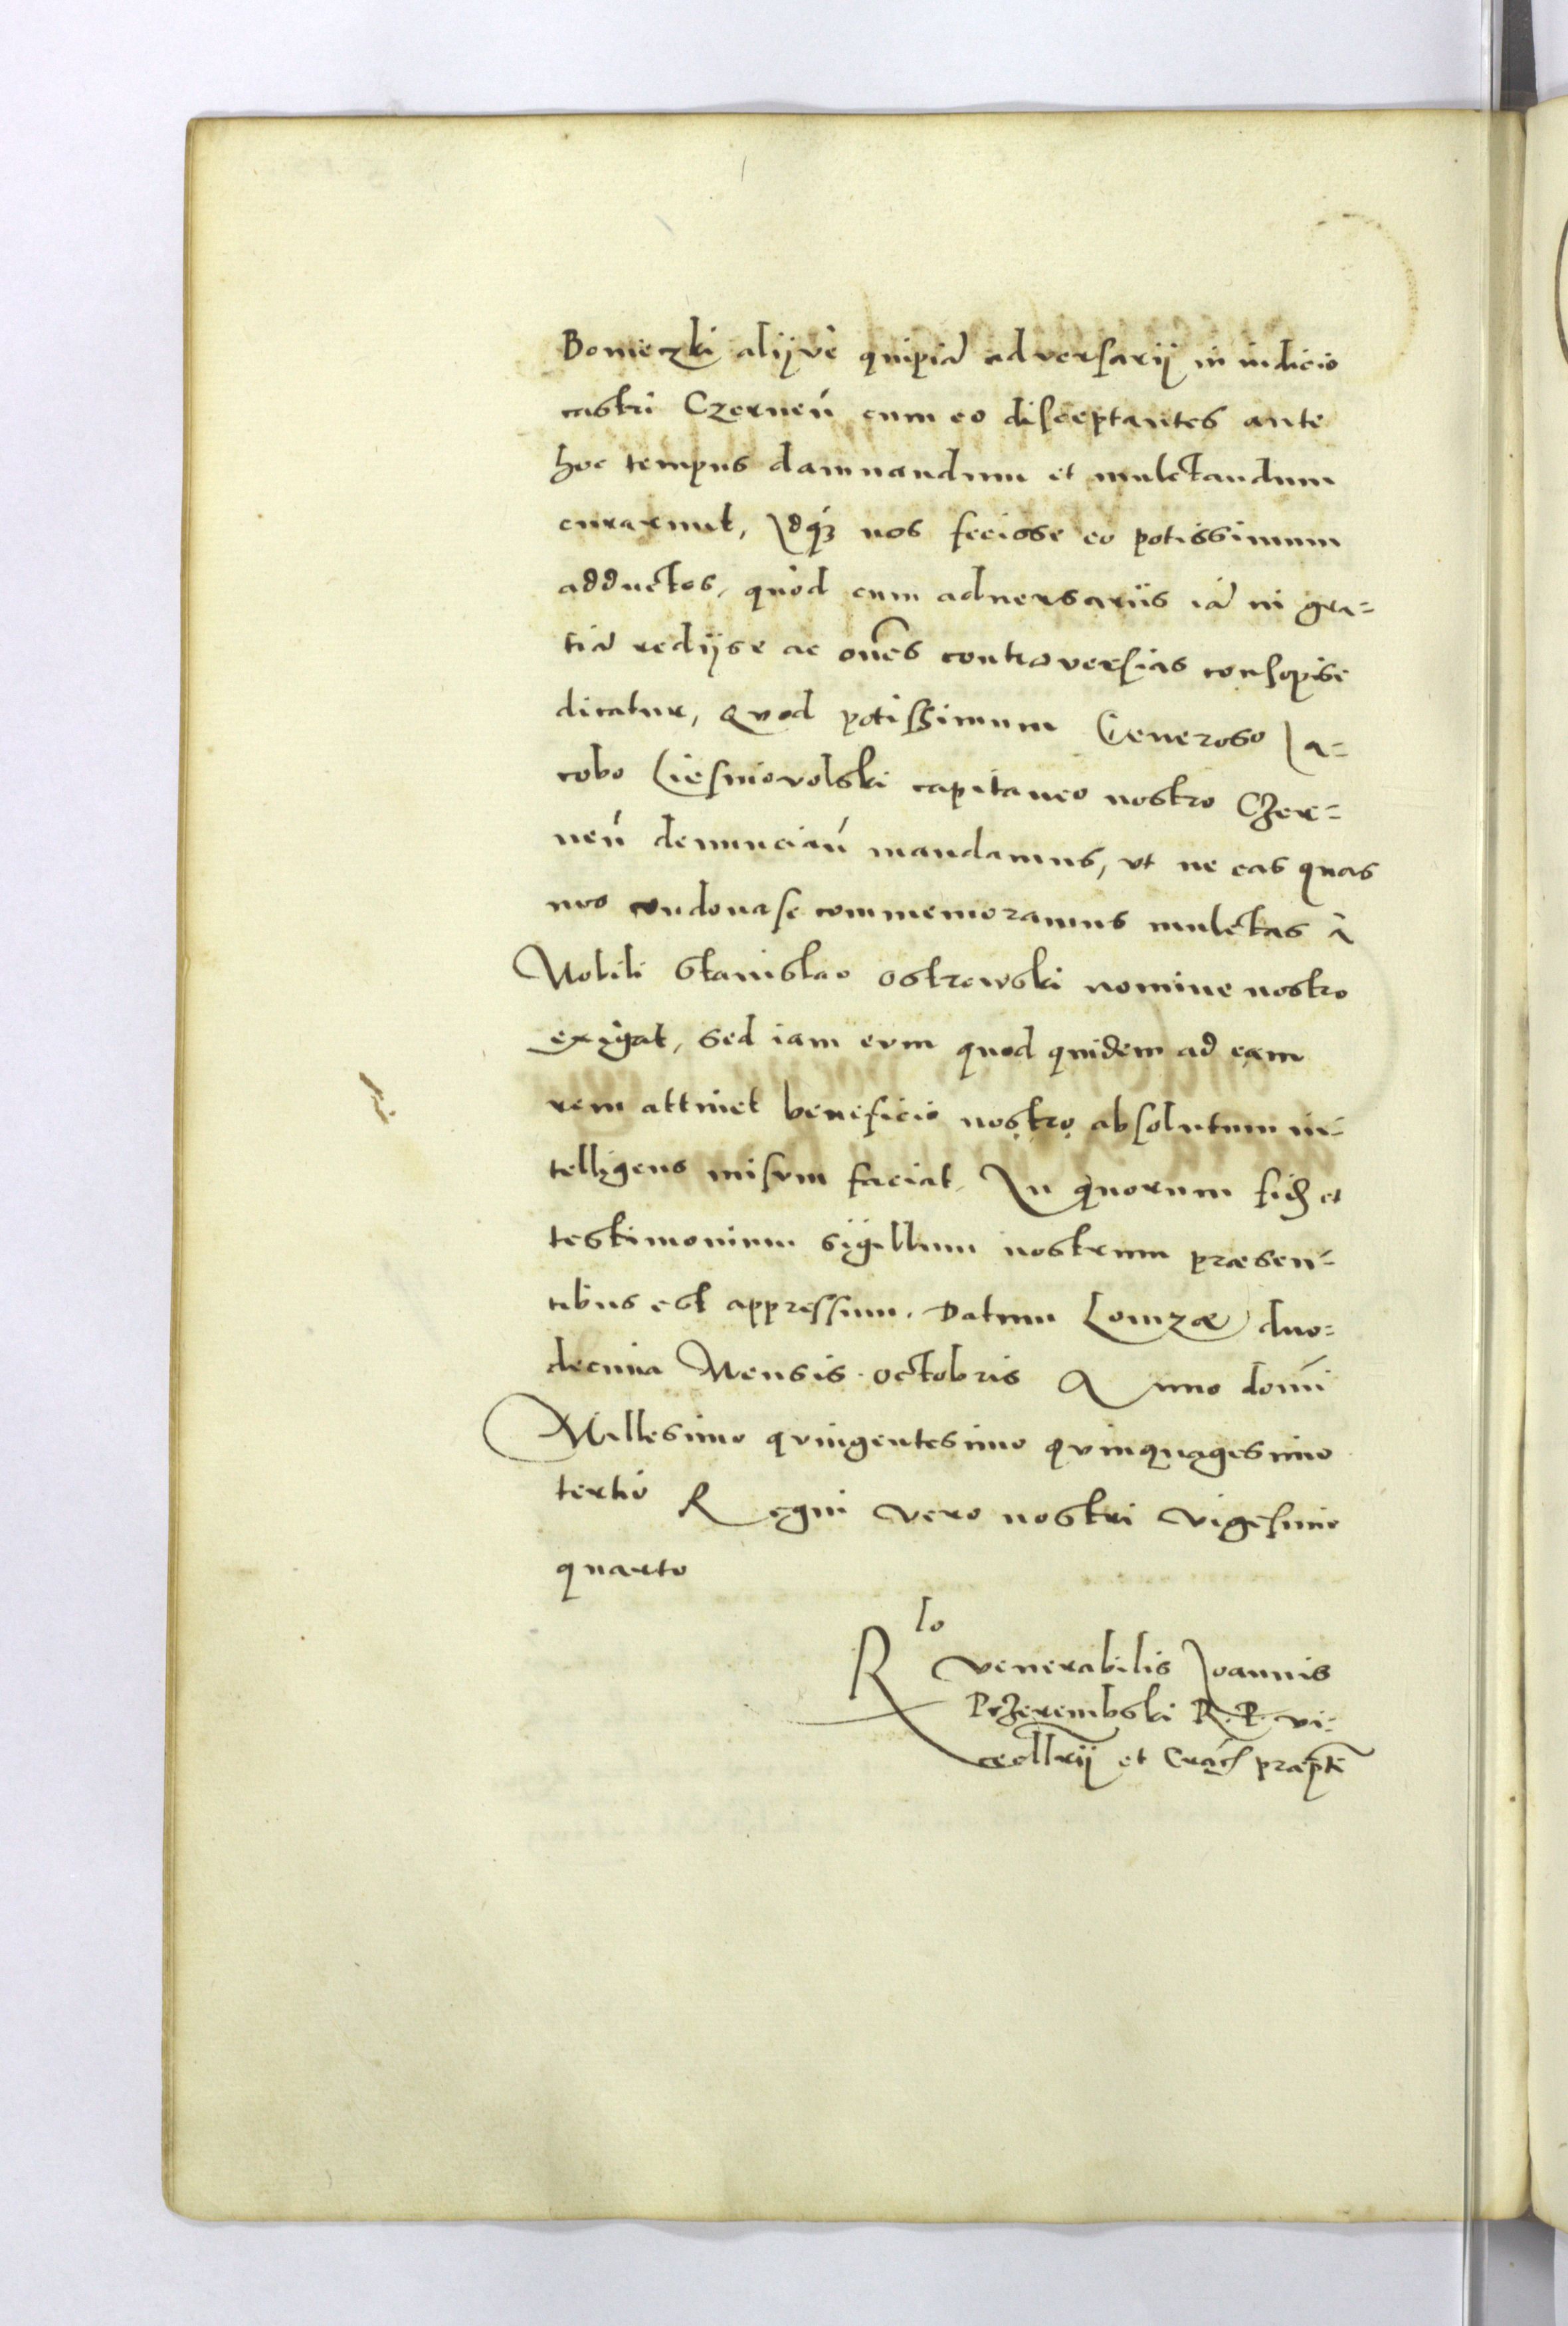 Bonieczki alijvè quipiā adversarij in iudicio
castri Czerneń cum eo disceptantes ante
hoc tempus damnandum et mulctandum
curarunt, Idq́ꝫ nos fecisse eo potissimum
adductos, quòd cum adversariis iā in gra=
tiā redijse ac oṁes controversias consopise
dicatur, Quod potissimum Generoso Ja=
cobo Liesniovolski capitaneo nostro Czer=
neń denunciań mandamus, vt ne eas quas
nos condonase commemoramus mulctas à
Nobili Stanislao Ostrowski nomine nostro
exigat, sed iam eum quod quidem ad eam
rem attinet beneficio nostro absolutum in=
telligens misum faciat. In quorum fidē et
testimonium sigillum nostrum præsen=
tibus est appressum. Datum Lomzæ duo=
decima Mensis Octobris Anno domī
Millesimo quingentesimo quinquagesimo
tertio Regni vero nostri vigesimo
quarto
Rlo venerabilis Joannis
Przerembski R. P. vi=
cecllrij et Cracꝭ præptī